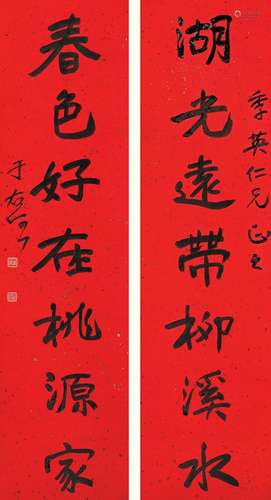 湖光遠帶柳溪水
季英仁兄正之
春色好在桃源家
于右任